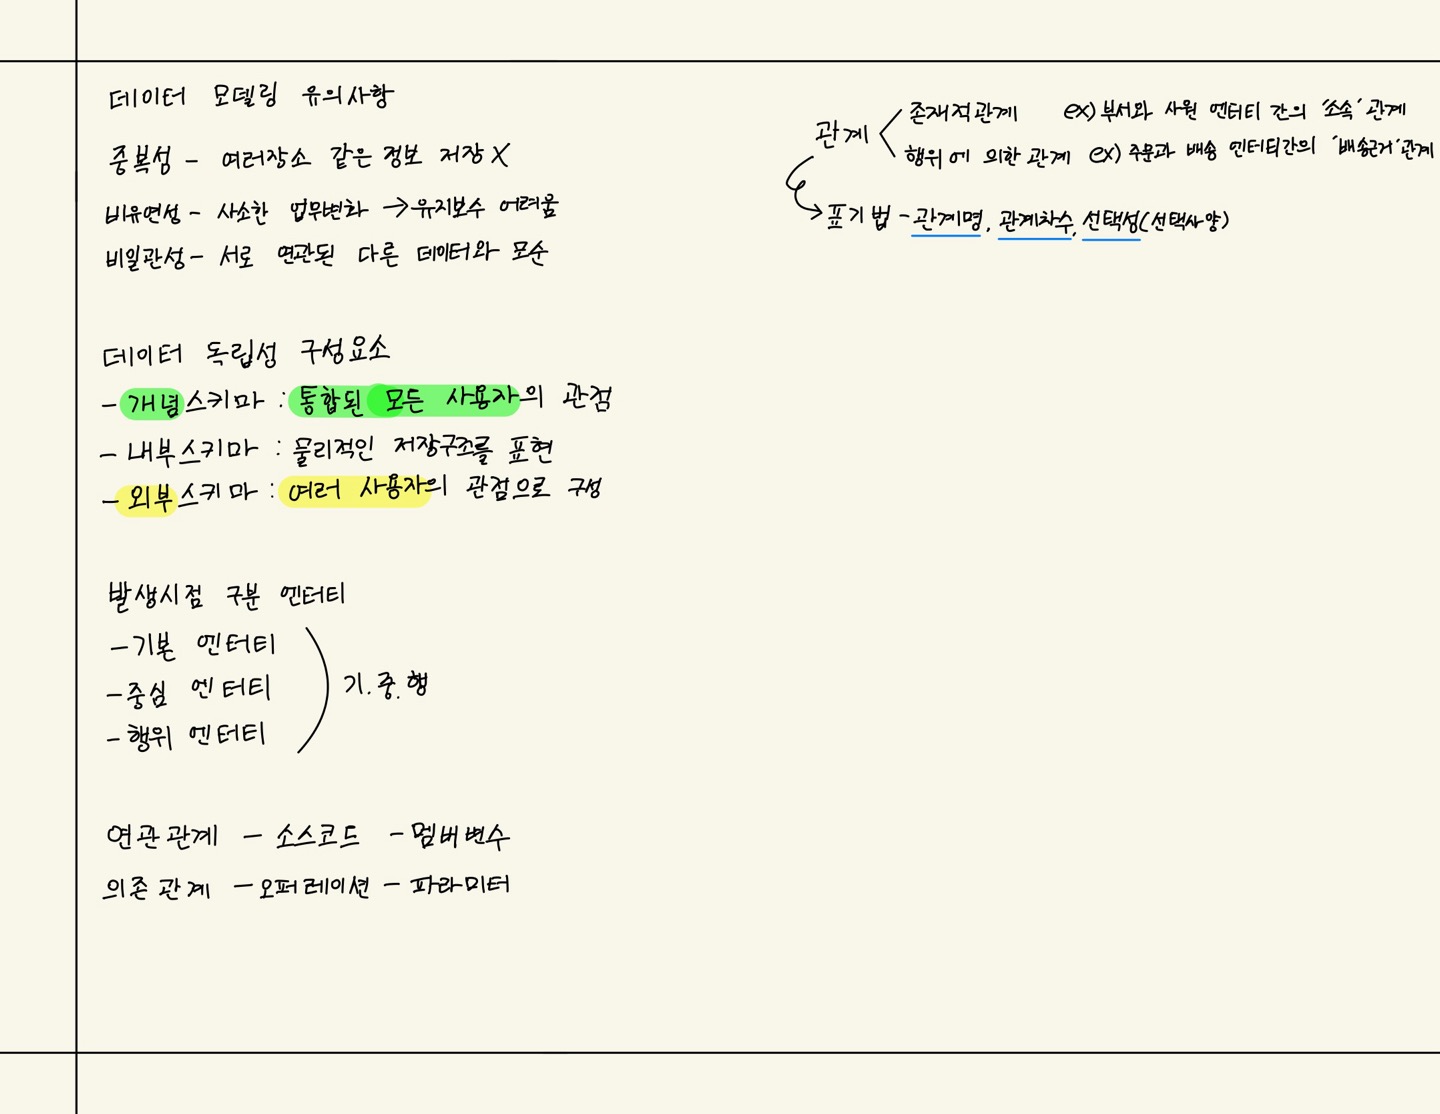 데이터 모델링 유의사항
중복성 - 여러장소 같은 정보 저장 X
비유연성 - 사소한 업무변화 → 유지보수 어려움
비일관성 - 서로 연관된 다른 데이터와 모순
데이터 독립성 구성요소
- 개념스키마 : 통합된 모든 사용자의 관점
- 내부스키마 : 물리적인 저장구조를 표현
- 외부스키마 : 여러 사용자의 관점으로 구성
발생시점 구분 엔터티
- 기본 엔터티
- 중심 엔터티
- 행위 엔터티
기.중.행
연관관계 - 소스코드 - 멤버변수
의존관계 - 오퍼레이션 - 파라미터
관계
존재적관계 ex) 부서와 사원 엔터티 간의 '소속' 관계
행위에 의한 관계 ex) 주문과 배송 엔터티간의 '배송근거' 관계
→ 표기법 - 관계명, 관계차수, 선택성(선택사양)